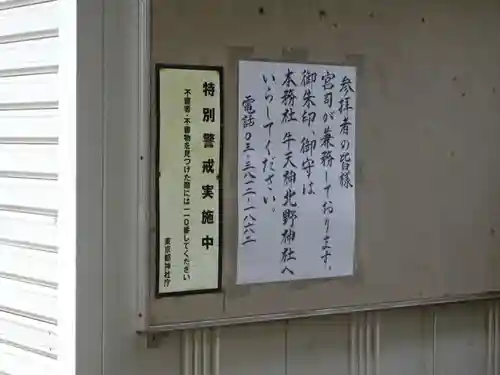 参拝者の皆様
宮司が兼務しております。
御朱印、御守は
本務社 牛天神北野神社へ
いらしてください。
電話03-3812-1862
特別警戒実施中
不審者・不審物を見つけた際には一一〇番してください
東京都神社庁